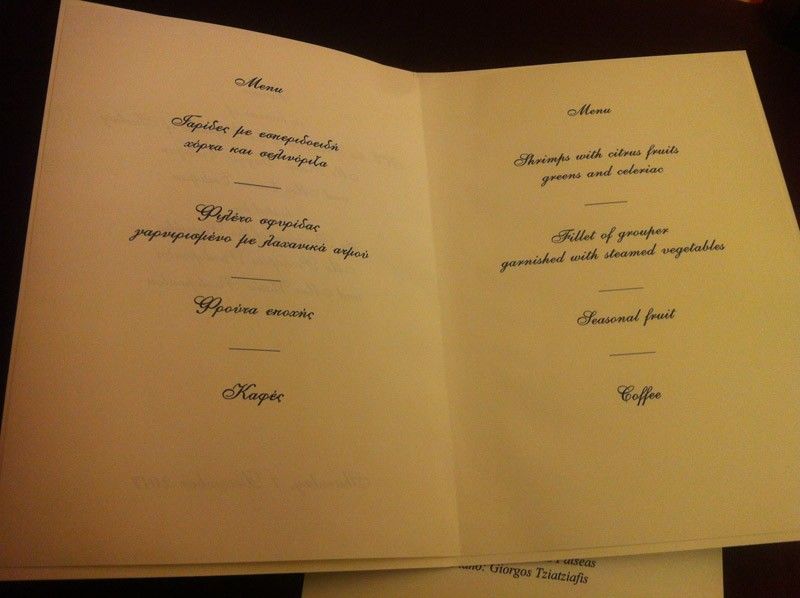 Menu
Γαρίδες με εσπεριδοειδή
χόρτα και σελινόριζα
Φιλέτο σφυρίδας
γαρνιρισμένο με λαχανικά ατμού
Φρούτα εποχής
Καφές
Menu
Shrimps with citrus fruits
greens and celeriac
Fillet of grouper
garnished with steamed vegetables
Seasonal fruit
Coffee
Patseas
Giorgos Tziatziafis